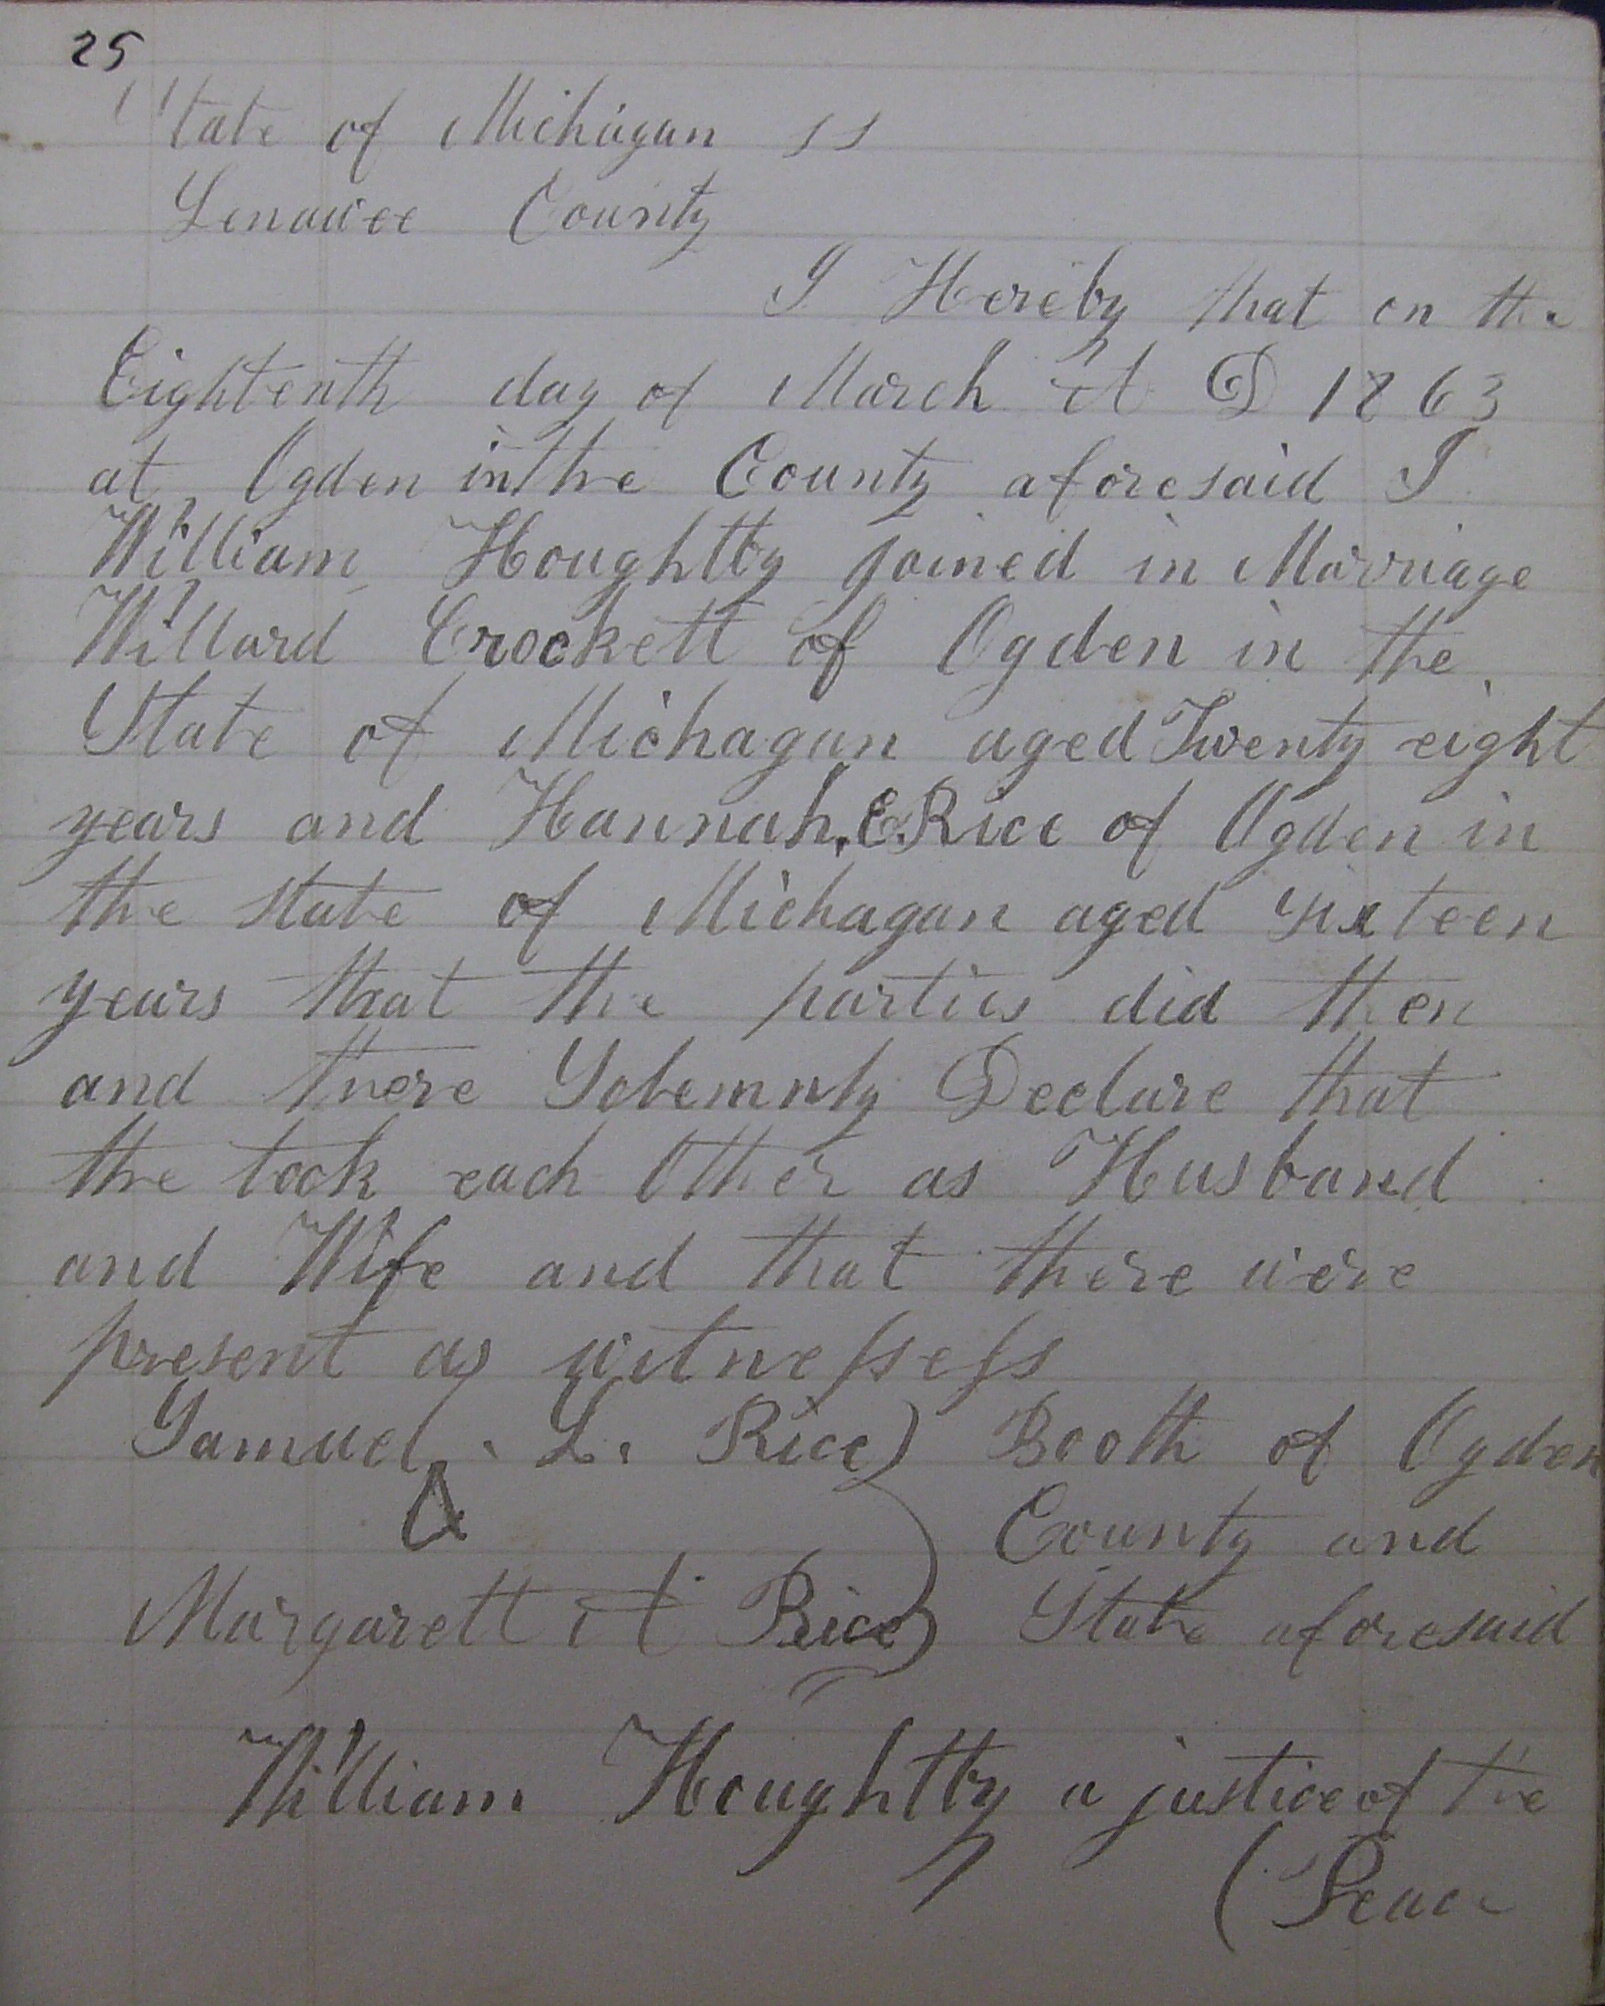 25
State of Michigan ss
Lenawee County
I Hereby that on the
Eightenth day of March A D 1863
at Ogden in the County aforesaid I
William Houghtby joined in Marriage
Willard Crockett of Ogden in the
State of Michagan aged Twenty eight
years and Hannah. E. Rice of Ogden in
the state of Michagan aged sixteen
years that the parties did then
and there Solemnly Declare that
the took each Other as Husband
and Wife and that there were
present as witnessess
Samuel. L. Rice) Booth of Ogden
& County and
Margarett A Rice) State aforesaid
William Houghtby a justice of the
(Peace